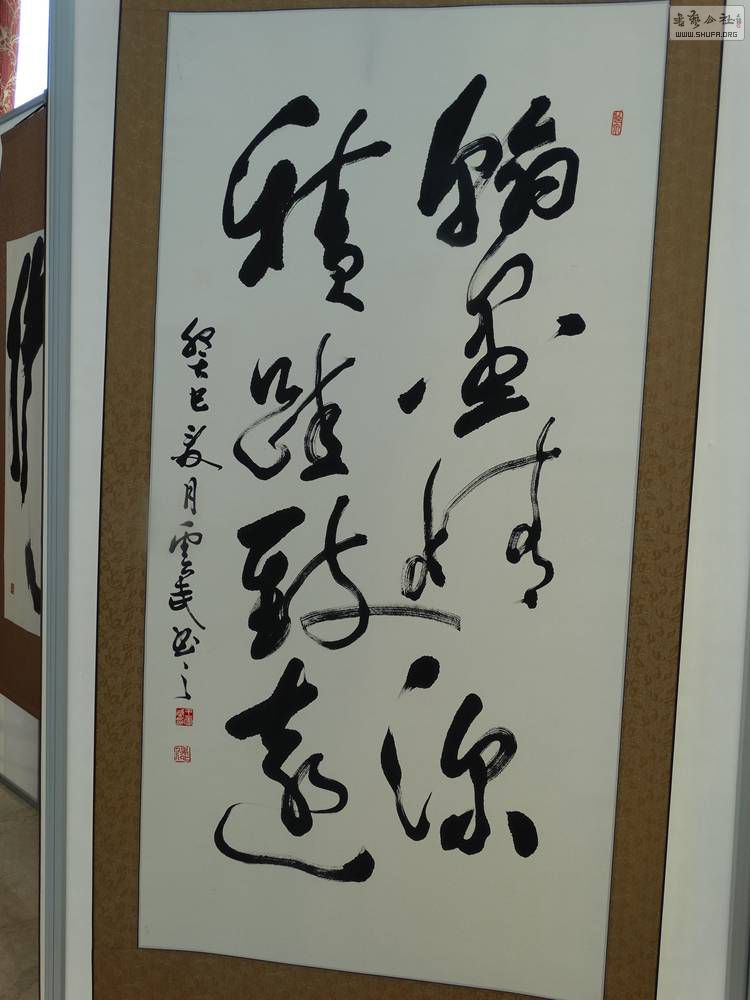 翰墨情深
積跬致遠
癸巳夏月雲武书之
書藝公社
WWW.SHUFA.ORG